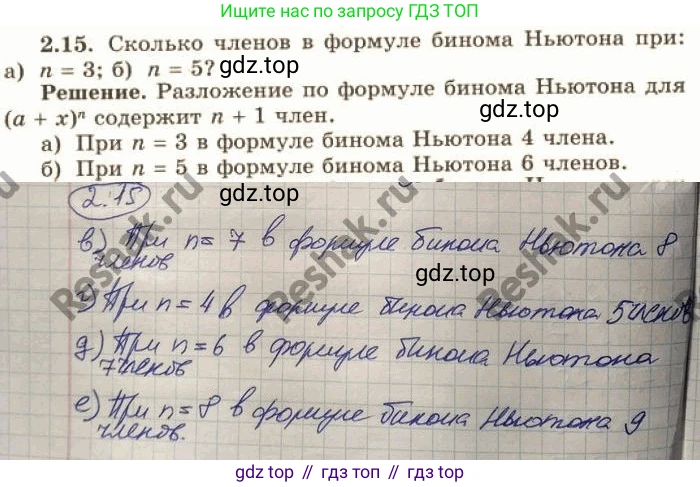 Ищите нас в интернете по запросу ГДЗ ТОП
2.15. Сколько членов в формуле бинома Ньютона при:
а) n = 3; б) n = 5?
gdz.top
Решение. Разложение по формуле бинома Ньютона для
(a + x)ⁿ содержит n + 1 член.
а) При n = 3 в формуле бинома Ньютона 4 члена.
б) При n = 5 в формуле бинома Ньютона 6 членов.
2.15
gdz.top
в) При n = 7 в формуле бинома Ньютона 8
членов
gdz.top
г) При n = 4 в формуле бинома Ньютона 5 членов
д) При n = 6 в формуле бинома Ньютона
7 членов
е) При n = 8 в формуле бинома Ньютона 9
членов.
Reshak.ru
Reshak.ru
Reshak.ru
gdz top // гдз топ // gdz.top